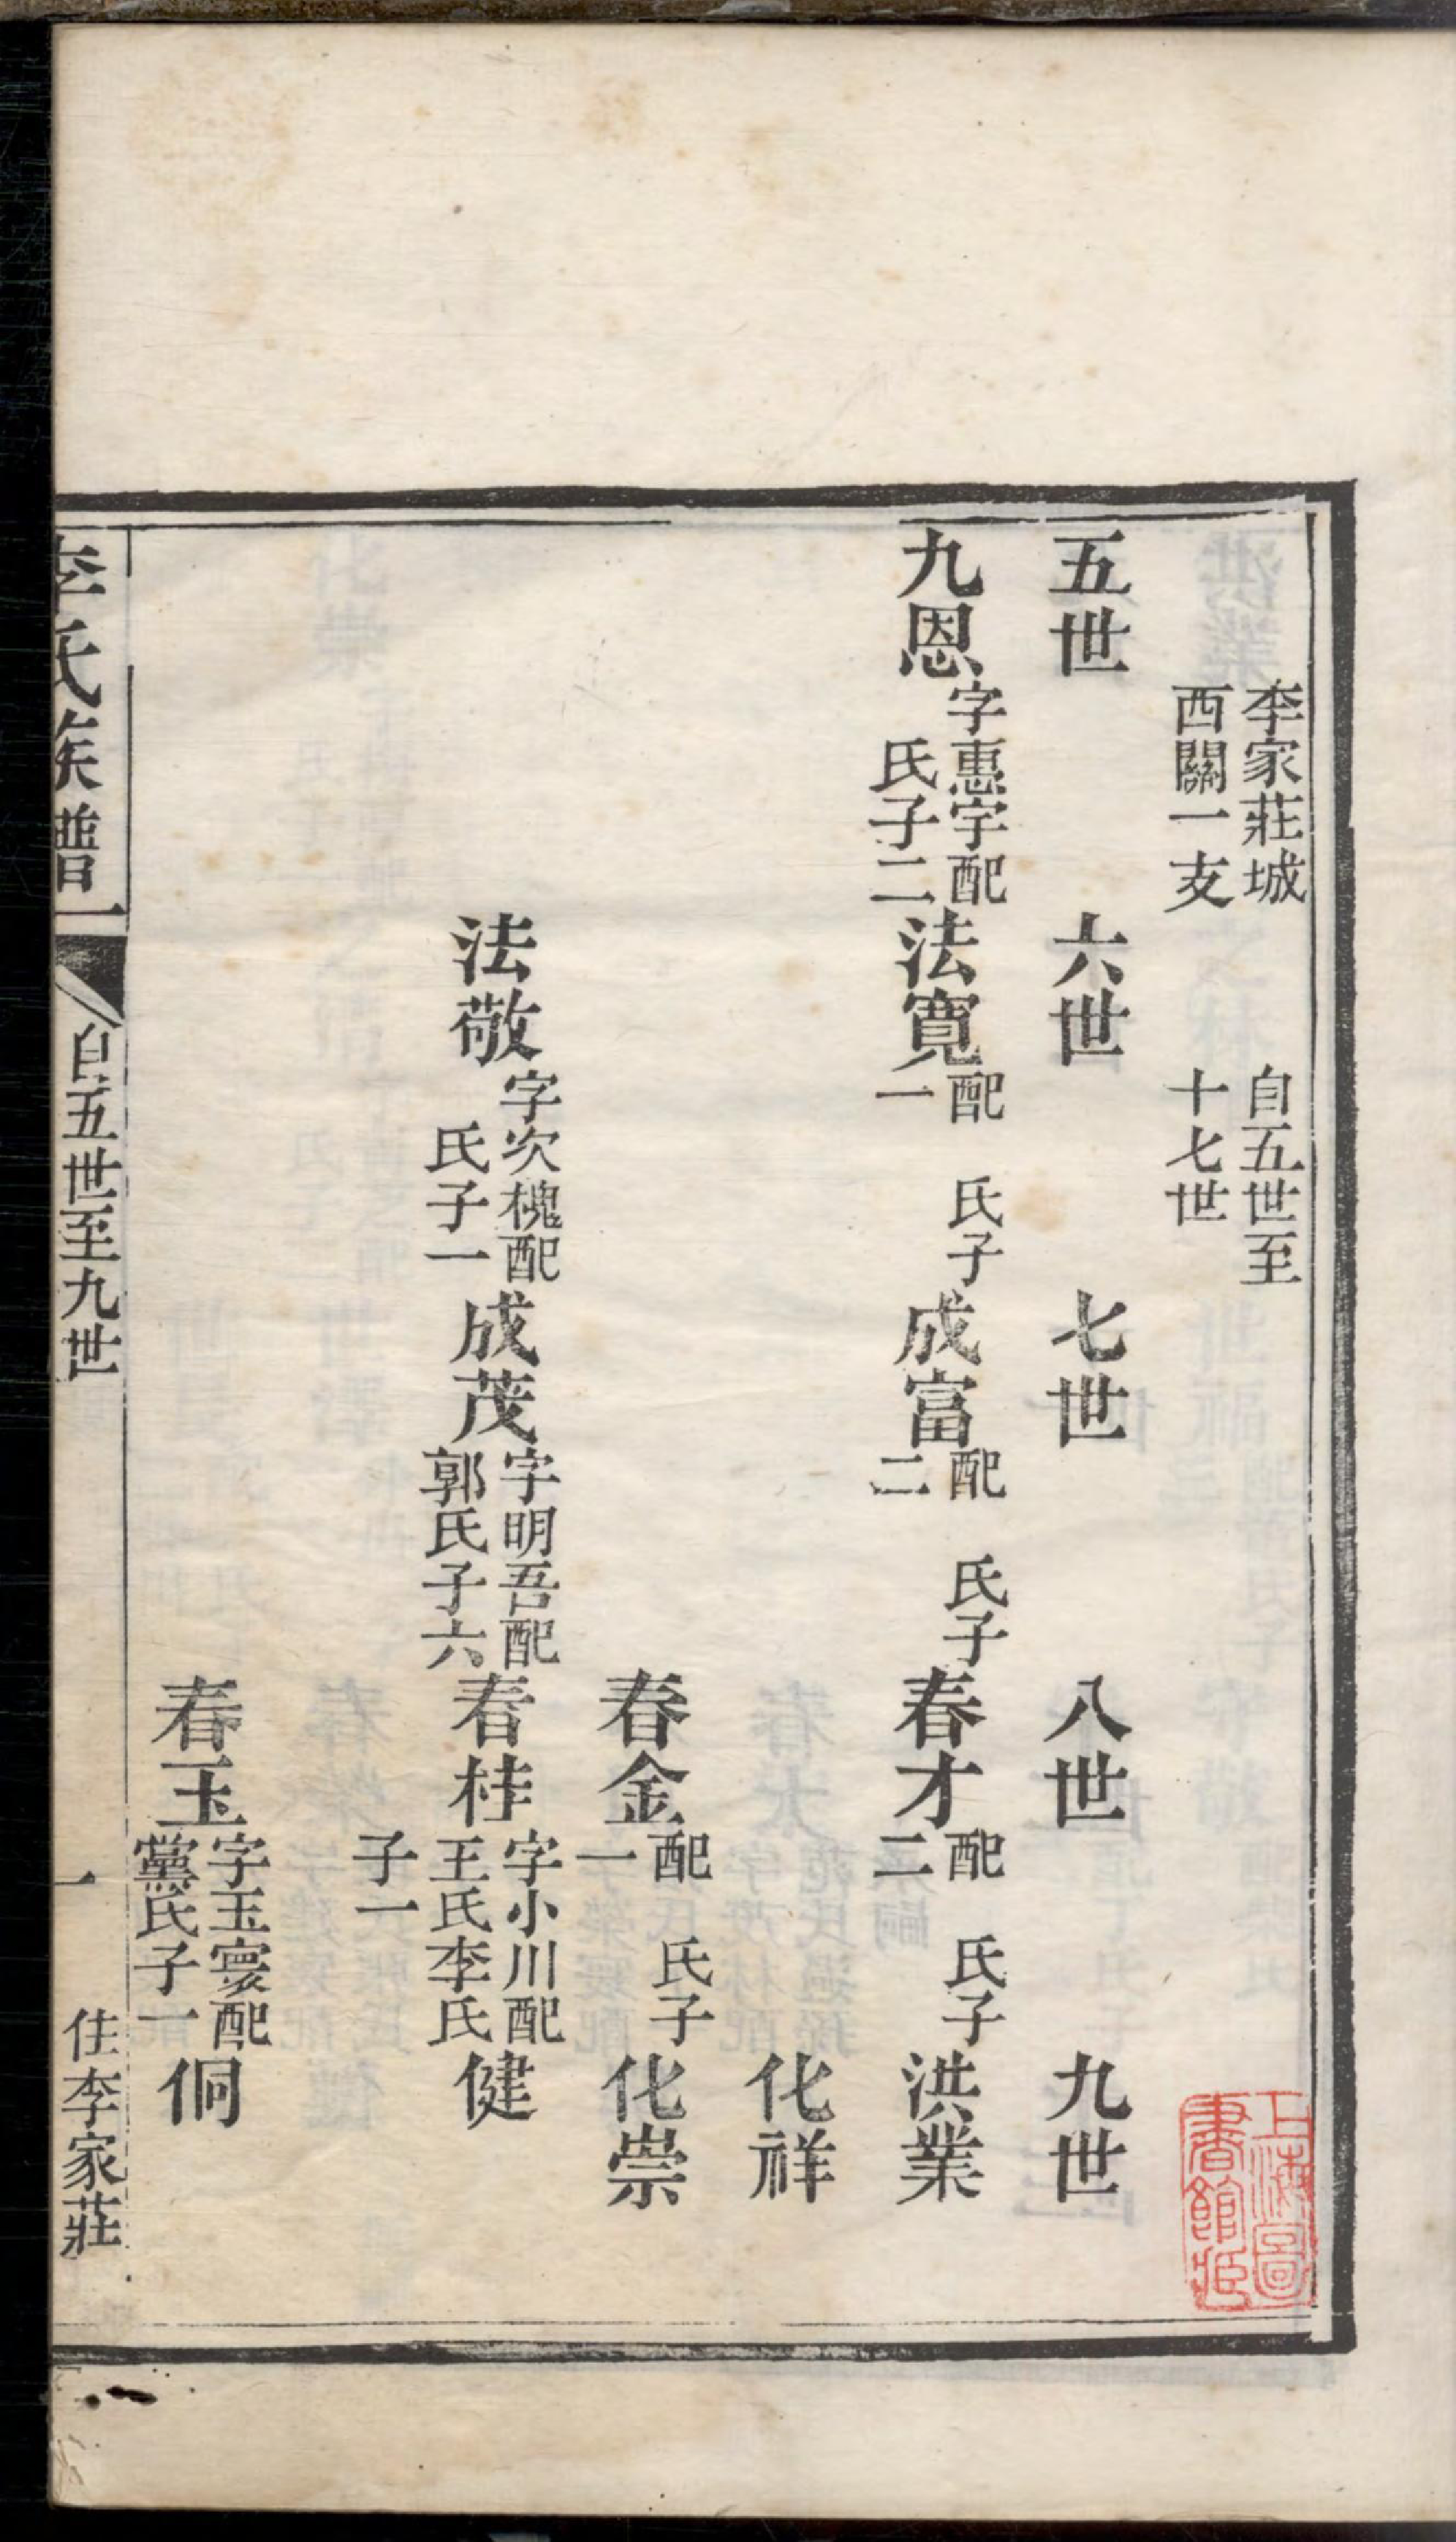 李家莊城
西關一支
自五世至
十七世
五世
六世
七世
八世
九世
九恩
字惠宇配
氏子二
法寬
配　氏子
一
成富
配　氏子
二
春才
配　氏子
二
洪業
化祥
春金
配　氏子
一
化崇
法敬
字次槐配
氏子一
成茂
字明吾配
郭氏子六
春桂
字小川配
王氏李氏
子一
健
春玉
字玉寰配
黨氏子一
侗
李氏族譜
自五世至九世
一
住李家莊
上海圖
書館藏